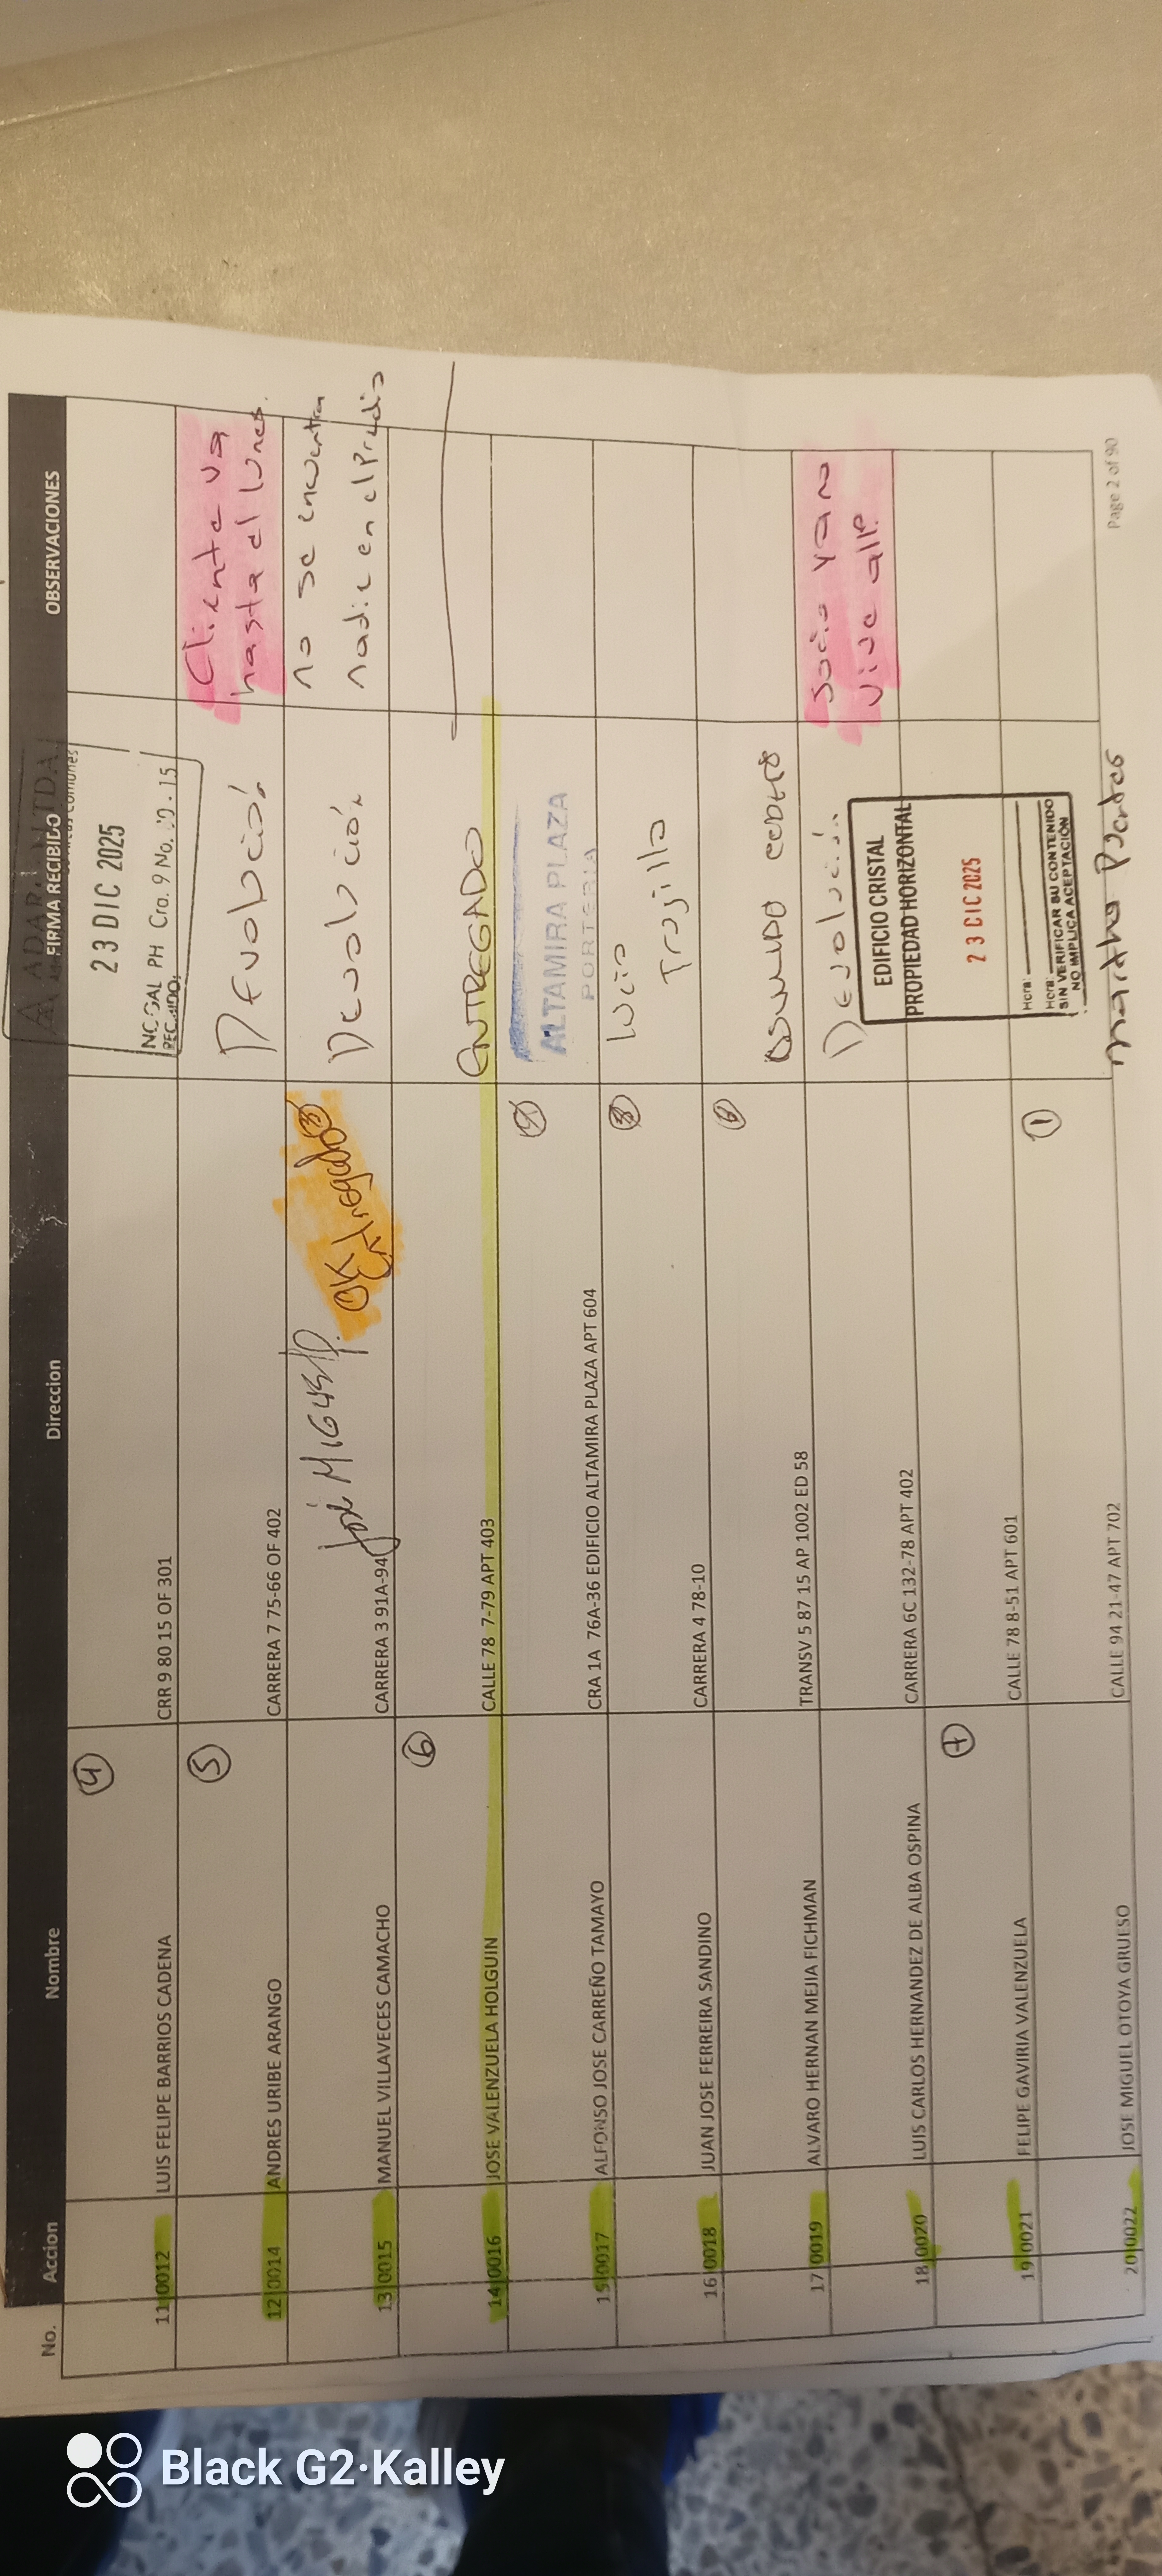 No. Accion Nombre Direccion FIRMA RECIBIDO OBSERVACIONES
23 DIC 2025
NOGAL PH Cra. 9 No. 80 - 15
RECIBIDO
11 0012 LUIS FELIPE BARRIOS CADENA 4 CRR 9 80 15 OF 301
12 0014 ANDRES URIBE ARANGO 5 CARRERA 7 75-66 OF 402 Devolución Cliente va
hasta el lunes.
13 0015 MANUEL VILLAVECES CAMACHO CARRERA 3 91A-94 José MIGUEL P. OK Entregado 3 Devolución no se encuentra
nadie en el Predio
14 0016 JOSE VALENZUELA HOLGUIN 6 CALLE 78 7-79 APT 403 ENTREGADO
15 0017 ALFONSO JOSE CARREÑO TAMAYO CRA 1A 76A-36 EDIFICIO ALTAMIRA PLAZA APT 604 ALTAMIRA PLAZA
PORTERIA
16 0018 JUAN JOSE FERREIRA SANDINO CARRERA 4 78-10 Lucio
Trujillo
17 0019 ALVARO HERNAN MEJIA FICHMAN TRANSV 5 87 15 AP 1002 ED 58
18 0020 LUIS CARLOS HERNANDEZ DE ALBA OSPINA CARRERA 6C 132-78 APT 402 Devolución Socio ya no
vive allí
19 0021 FELIPE GAVIRIA VALENZUELA 7 CALLE 78 8-51 APT 601
EDIFICIO CRISTAL
PROPIEDAD HORIZONTAL
23 DIC 2025
Hora:
Hora:
SIN VERIFICAR SU CONTENIDO
NO IMPLICA ACEPTACIÓN
20 0022 JOSE MIGUEL OTOYA GRUESO CALLE 94 21-47 APT 702 1 Martha Puentes
Page 2 of 90
Black G2·Kalley